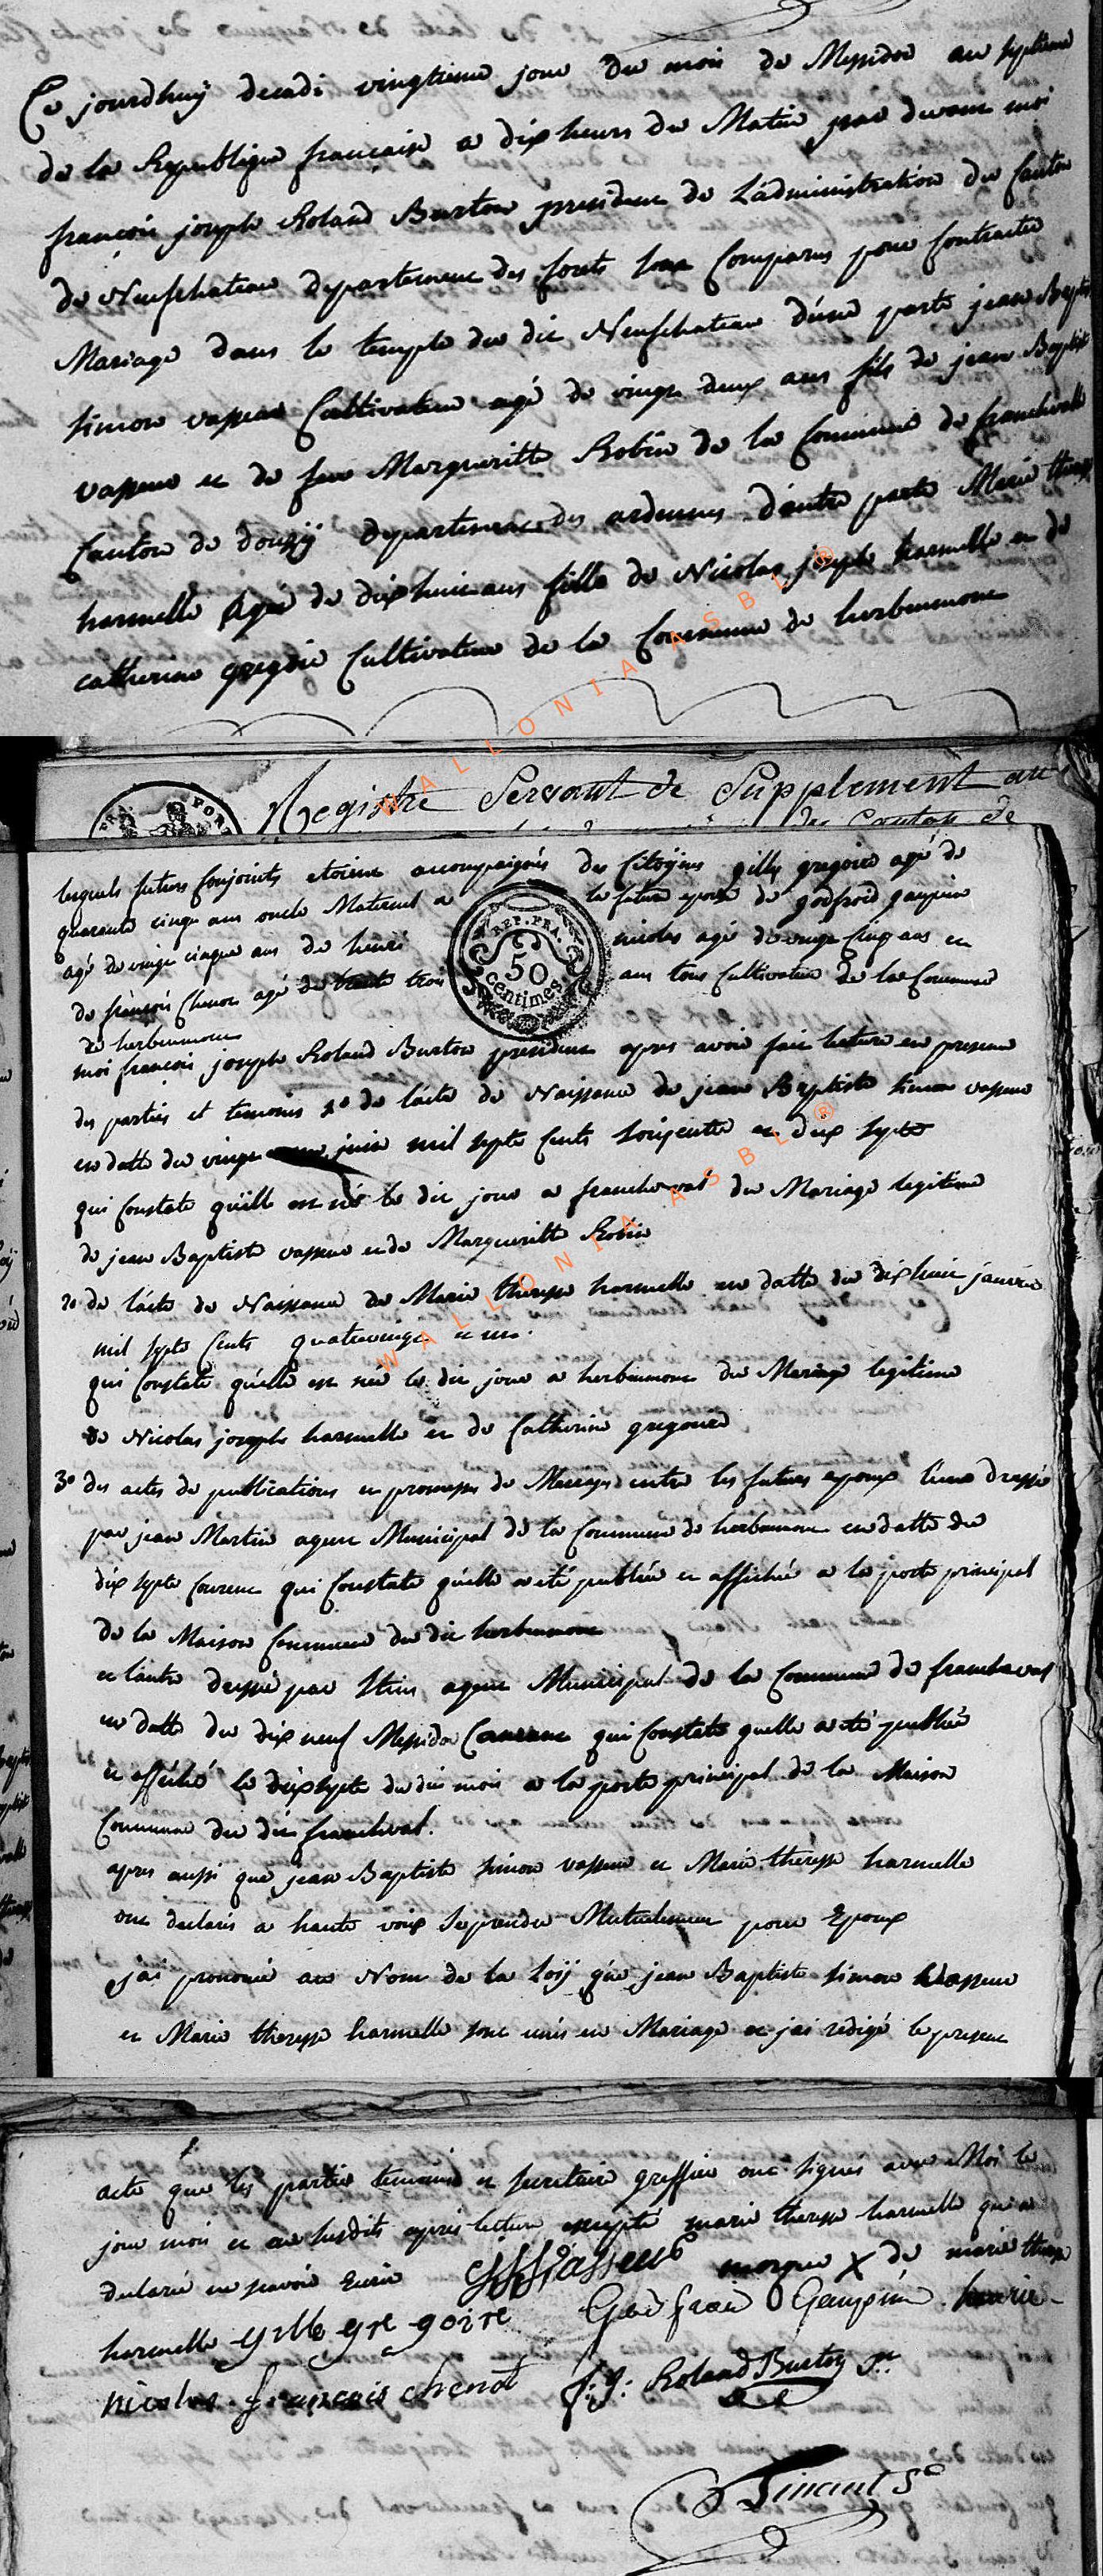 Ce jourdhuij decadi vingtieme jour du mois de Messidor an septieme
de la Republique française a dix heurs du Matin par devant moi
françois joseph Roland Burton president de L'administration du Canton
de Neufchateau departement des forets sont Comparus pour Contracter
Mariage dans le temple du dit Neufchateau d'une parte jean Baptiste
Simon vasseur Cultivateur agé de vingt deux ans fils de jean Baptiste
vasseur et de feue Margueritte Robin de la Commune de francheval
Canton de douzÿ departement des ardennes d'autre parte Marie therese
harmelle Agée de dix huit ans fille de Nicolas joseph harmelle et de
catherine gregoire Cultivateur de la Commune de herbeumont
Registre Servant de Supplement au
des Contas de
lesquels futurs Conjoints etoient accompaignés des Citoÿens gille gregoire agé de
quarante cinque ans oncle Maternel a la future epouse de godfroid gaupin
agé de vingt cinque ans de henri nicolas agé de vingt Cinq ans et
de françois Chenot agé de trente trois ans tous Cultivateur de la Commune
de herbeumont
REP. FRA.
50
centimes
moi françois joseph Roland Burton president apres avoir fait lecture en presence
des parties et temoins 1° de l'acte de Naissance de jean Baptiste Simon vasseur
en datte du vingt juin mil septe Cents soixente et dix septe
qui Constate quille est né le dit jour a francheval du Mariage legitime
de jean Baptiste vasseur et de Margueritte Robin
2° de l'acte de Naissance de Marie therese harmelle en datte du dix huit janvier
mil septe Cents quatrevingt et un.
qui Constate quélle est née le dit jour a herbeumont du Mariage legitime
de Nicolas joseph harmelle et de Catherine gregoire
3° des actes de publications en promesses de Mariage entre les futurs epoux l'une dressé
par jean Martin agent Municipal de la Commune de herbeumont en datte du
dix septe Courent qui Constate quélle a eté publiée et affichée a la porte principal
de la Maison Commune du dit herbeumont
et l'autre dressé par agent Municipal de la Commune de francheval
en datte du dix neuf Messidor Courent qui Constate quelle a eté publiée
et affiché le dix septe du dit mois a la porte principal de la Maison
Commune du dit francheval.
apres aussi que jean Baptiste Simon vasseur et Marie therèsse harmelle
ont declaris a haute voix se prendre Mutuelement pour Epoux
j'ai prononcé au Nom de la Loij que jean Baptiste Simon Vasseur
et Marie theresse harmelle sont unis en Mariage et j'ai rédigé le present
acte que les partie temoins et secretaire greffier ont signés avec Moi le
jour mois et an susdits apres lecture excepté marie theresse harmelle qui a
declaré ne savoir Ecrir JBSVasseur marque X de marie therese
harmelle gille gregoire Godfroid Gaupin henrie
nicolas françois chenot f: j: Roland Burton Pt.
Tinant Se
WALLONIA ASBL ®
WALLONIA ASBL ®